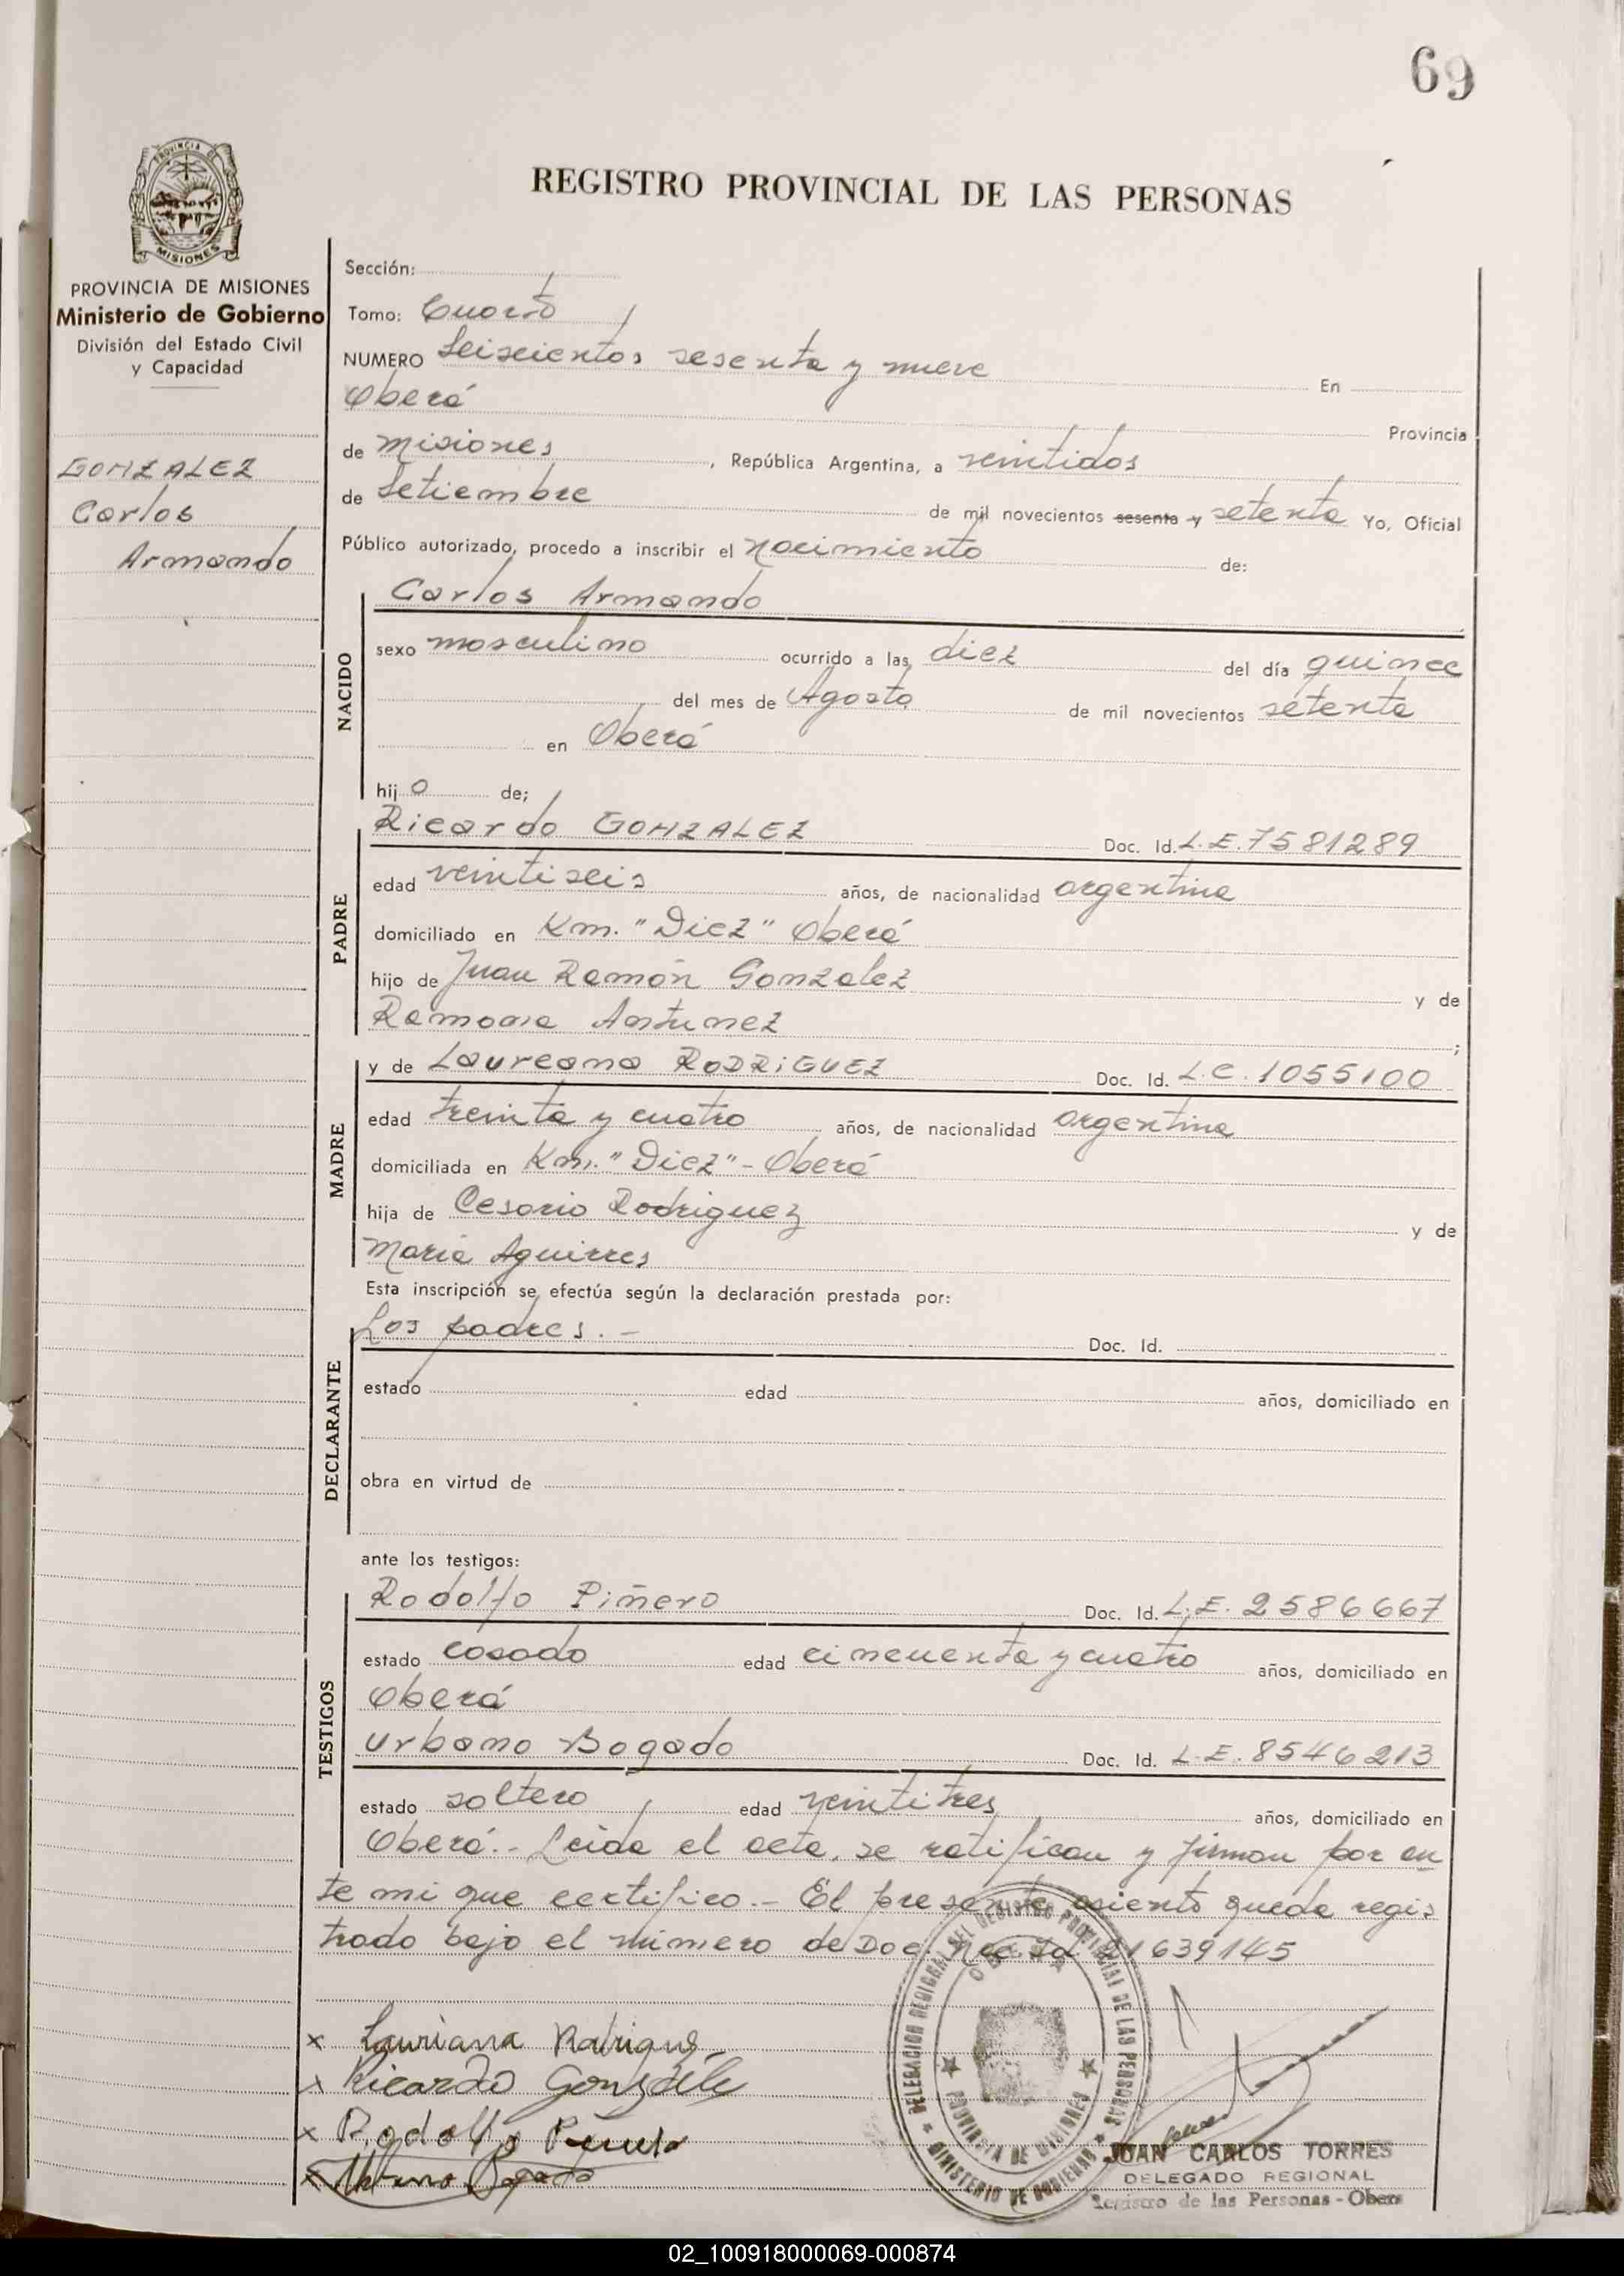 69
REGISTRO PROVINCIAL DE LAS PERSONAS
PROVINCIA DE MISIONES
Ministerio de Gobierno
División del Estado Civil
y Capacidad
GONZALEZ
Carlos
Armando
Sección:
Tomo: Cuarto
NUMERO Seiscientos sesenta y nueve En
Oberá Provincia
de Misiones, República Argentina, a veintidos
de Setiembre de mil novecientos sesenta y setenta Yo, Oficial
Público autorizado, procedo a inscribir el nacimiento de:
Carlos Armando
NACIDO
sexo masculino ocurrido a las diez del día quince
del mes de Agosto de mil novecientos setenta
en Oberá
hijo de;
Ricardo GONZALEZ Doc. Id. L.E. 7581289
PADRE
edad veintiseis años, de nacionalidad argentina
domiciliado en Km. "Diez" Oberá
hijo de Juan Ramón Gonzalez y de
Ramona Antunez;
y de Laureana RODRiGUEZ Doc. Id. L.C. 1055100
MADRE
edad treinta y cuatro años, de nacionalidad argentina
domiciliada en Km. "Diez" - Oberá
hija de Cesario Rodriguez y de
Maria Aguirres
Esta inscripción se efectúa según la declaración prestada por:
Los padres. - Doc. Id.
DECLARANTE
estado edad años, domiciliado en
obra en virtud de
ante los testigos:
Rodolfo Piñero Doc. Id. L.E. 2586667
TESTIGOS
estado casado edad cincuenta y cuatro años, domiciliado en
Oberá
Urbano Bogado Doc. Id. L.E. 8546213
estado soltero edad veintitres años, domiciliado en
Oberá.- Leida el acta, se ratifican y firman por an
te mi que certifico.- El presente asiento queda regis
trado bajo el número de Doc. Nac. Id 21639145
x Lauriana Rodrigus
x Ricardo Gonzále
x Rodolfo Piñero
x Urbano Bogado
DELEGACION REGIONAL DEL REGISTRO PROVINCIAL DE LAS PERSONAS
OBERA
PROVINCIA DE MISIONES
MINISTERIO DE GOBIERNO
JUAN CARLOS TORRES
DELEGADO REGIONAL
Registro de las Personas - Obera
02_100918000069-000874